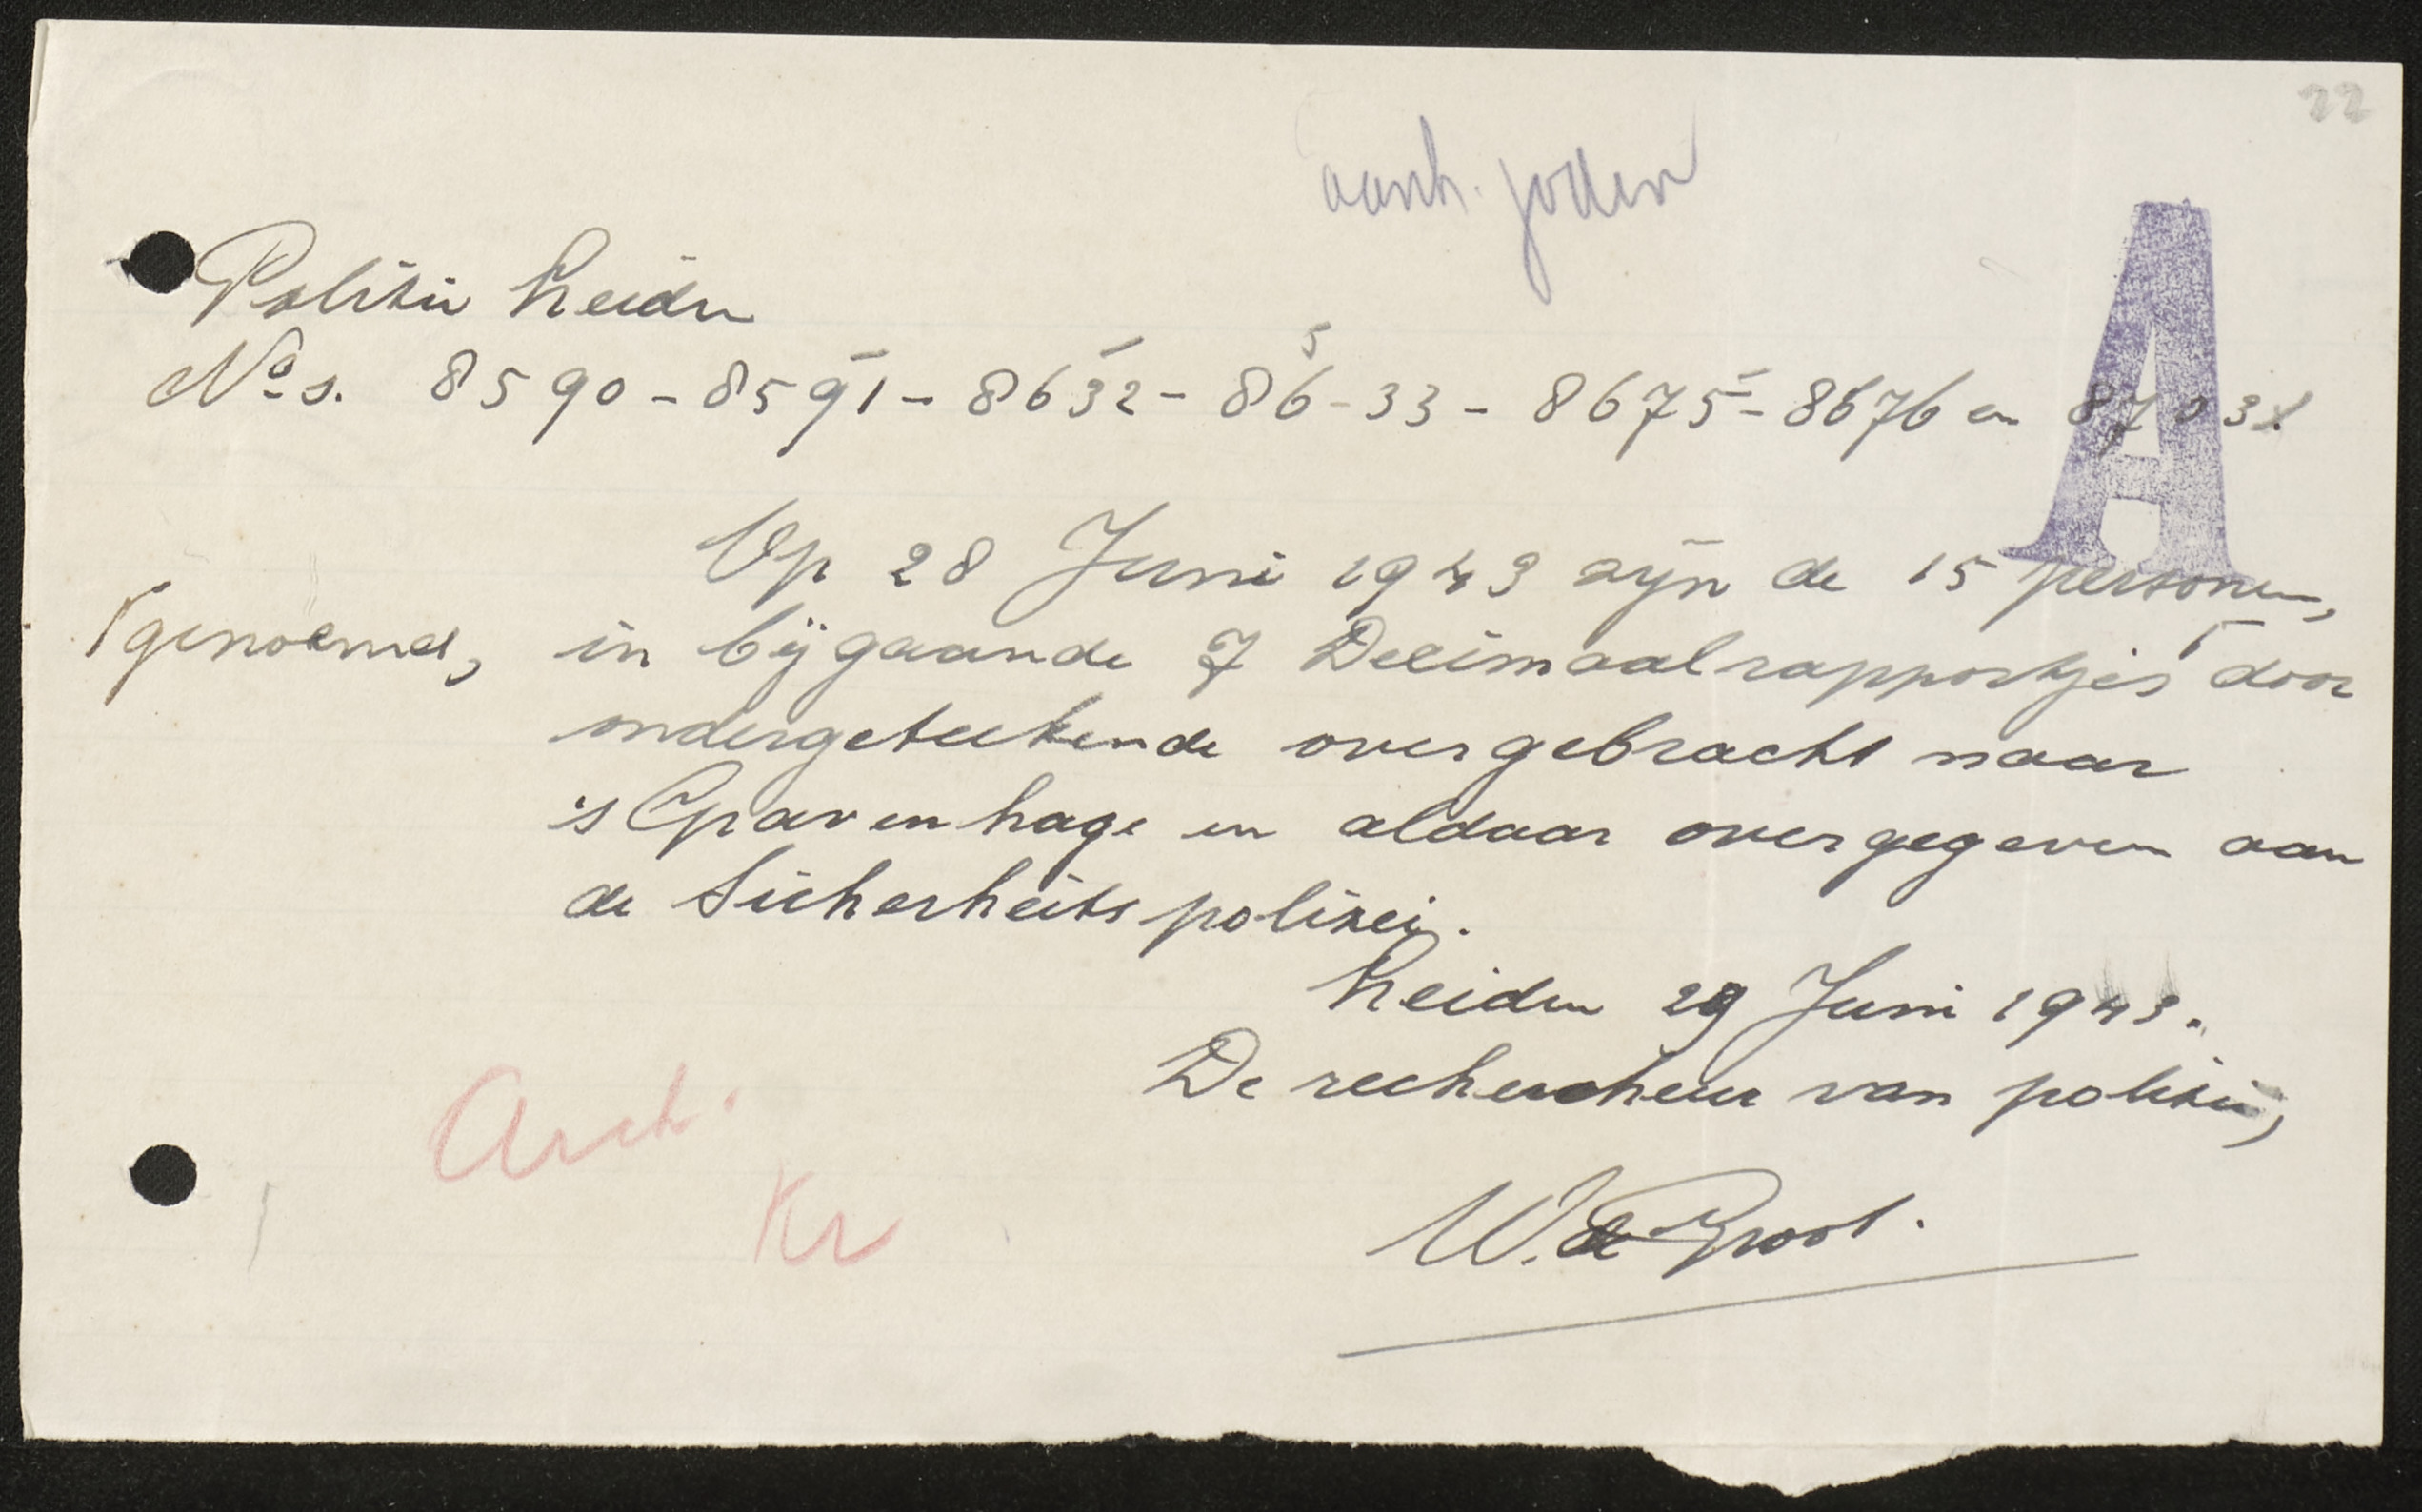 22
aanh. joden
A
Politie Leiden
Nos. 8590 - 8591 - 8632 - 86-33 - 8675 - 8676 en 8703
5
Op 28 Juni 1943 zijn de 15 personen,
in bijgaande 7 Decimaalrapportjes ⌈ door
⌈ genoemd,
ondergeteekende overgebracht naar
's Gravenhage en aldaar overgegeven aan
de Sicherheitspolizei.
Leiden 29 Juni 1943.
De rechercheur van politie,
W. de Groot.
Arch.
Kr